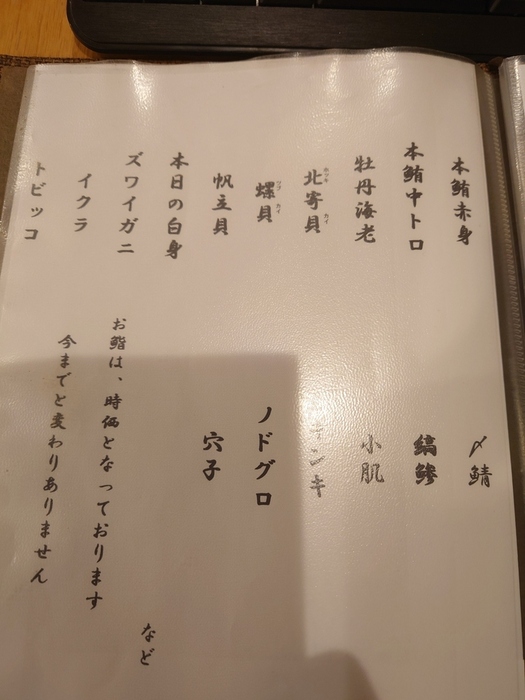 本鮪赤身
本鮪中トロ
牡丹海老
北寄貝
ホッキ カイ
螺貝
ツブ カイ
帆立貝
本日の白身
ズワイガニ
イクラ
トビッコ
〆鯖
縞鯵
小肌
キンキ
ノドグロ
穴子
など
お鮨は、時価となっております
今までと変わりありません